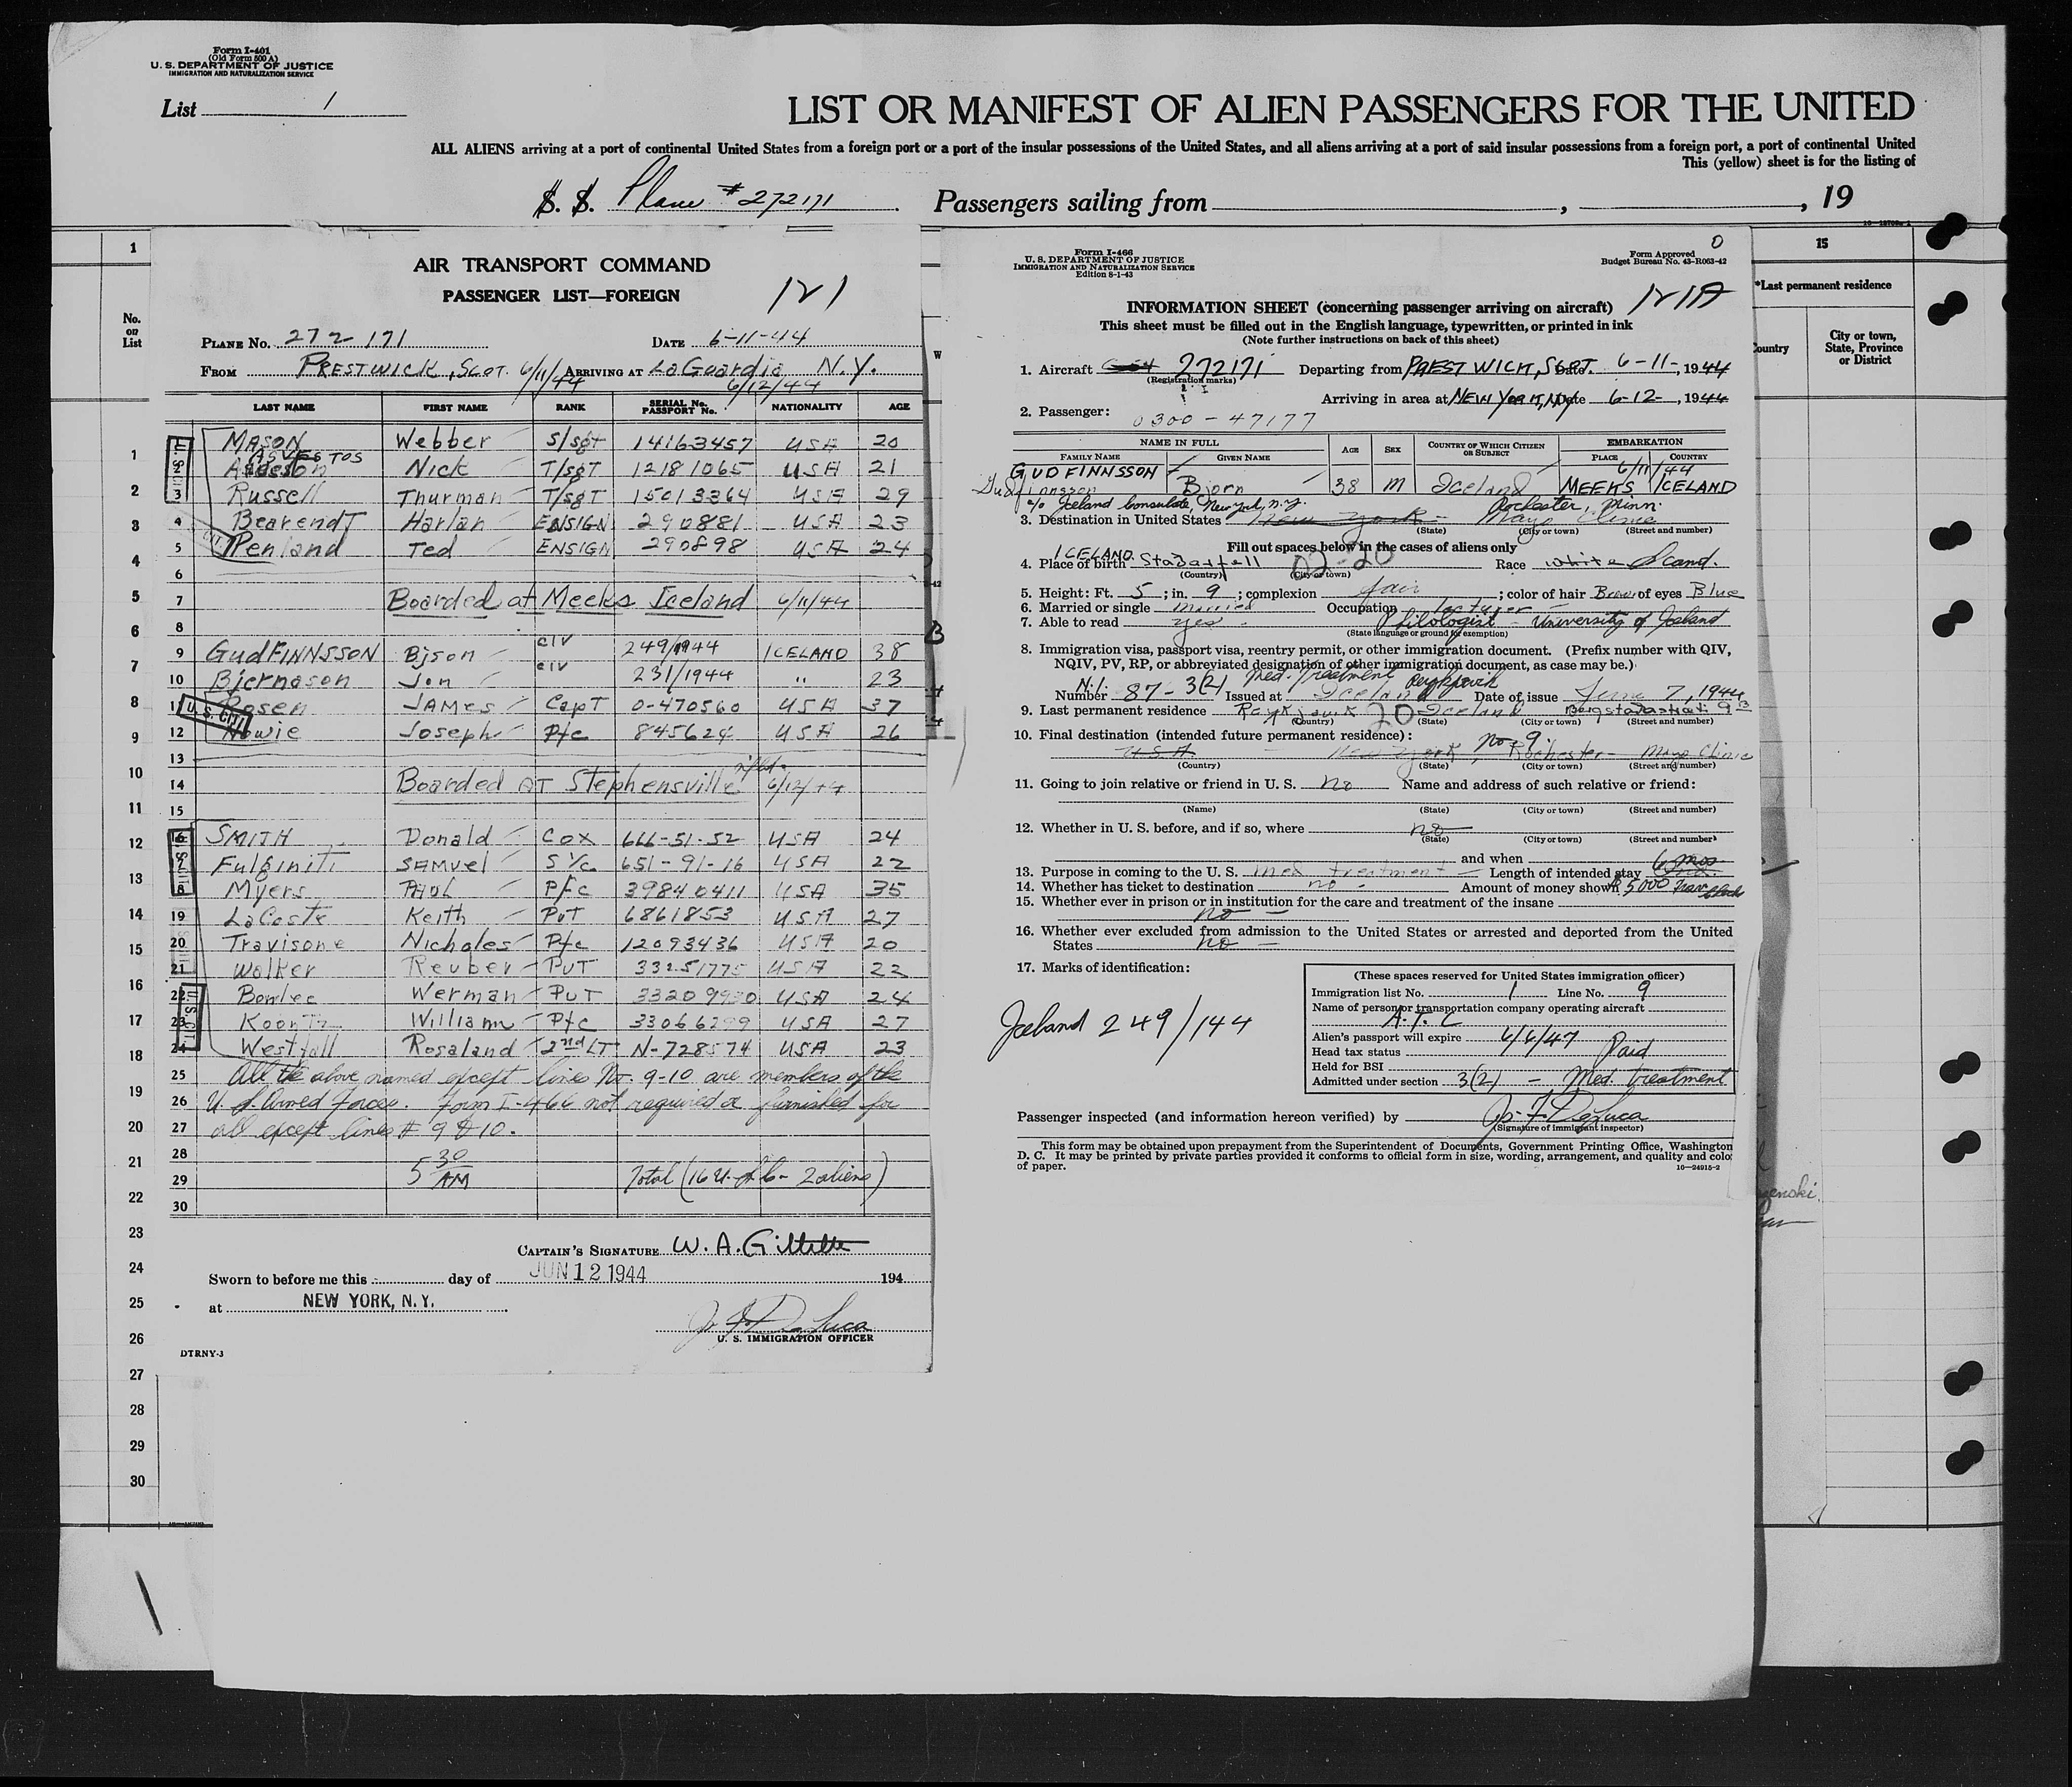 Form I-401
(Old Form 500 A)
U. S. DEPARTMENT OF JUSTICE
IMMIGRATION AND NATURALIZATION SERVICE
List 1
LIST OR MANIFEST OF ALIEN PASSENGERS FOR THE UNITED
ALL ALIENS arriving at a port of continental United States from a foreign port or a port of the insular possessions of the United States, and all aliens arriving at a port of said insular possessions from a foreign port, a port of continental United
This (yellow) sheet is for the listing of
S. S. Plane #272171 Passengers sailing from , , 19
AIR TRANSPORT COMMAND
PASSENGER LIST—FOREIGN
121
PLANE NO. 272-171 DATE 6-11-44
FROM PRESTWICK, SCOT. 6/11/44 ARRIVING AT LaGuardia N.Y.
6/12/44
LAST NAME FIRST NAME RANK SERIAL No. PASSPORT No. NATIONALITY AGE
MASON Webber S/sgt 14163457 USA 20
Nick T/sgt 12181065 USA 21
3 Russell Thurman T/sgt 15013364 USA 29
4 Bearendt Harlan ENSIGN 290881 USA 23
5 Penland Ted ENSIGN 290898 USA 24
6
7 Boarded at Meeks Iceland 6/11/44
8
9 GudFINNSSON Bjson CIV 249/1944 ICELAND 38
10 Bjernason Jon CIV 231/1944 " 23
Rosen JAMES CapT 0-470560 USA 37
U. S. CIT.
12 Howie Joseph P/c 845624 USA 26
13
14 Boarded AT Stephensville nfld. 6/12/44
15
16 SMITH Donald COX 666-51-52 USA 24
Fulginiti SAMuel S 1/c 651-91-16 USA 22
8 Myers PAUL Pfc 39840411 USA 35
19 LaCoste Keith PVT 6861853 USA 27
20 Travisone Nicholes Pfc 12093436 USA 20
21 Walker Reuber PVT 33251775 USA 22
22 Werman PVT 33209930 USA 24
23 Koontz William Pfc 33066299 USA 27
24 Westfall Rosaland 2nd LT N-728574 USA 23
25 All the above named except lines No. 9-10 are members of the
26 U. S. Armed Forces. Form I-466 not required or furnished for
27 all except lines # 9 & 10.
28
29 5 30 AM Total (16 U. S. C- 2 aliens)
30
CAPTAIN'S SIGNATURE W. A. Gillette
Sworn to before me this day of JUN 12 1944 194
at NEW YORK, N. Y.
J. F. DeLuca
U. S. IMMIGRATION OFFICER
DTRNY-3
Form I-466
U. S. DEPARTMENT OF JUSTICE
IMMIGRATION AND NATURALIZATION SERVICE
Edition 8-1-43
0
Form Approved
Budget Bureau No. 43-R063-42
121A
INFORMATION SHEET (concerning passenger arriving on aircraft)
This sheet must be filled out in the English language, typewritten, or printed in ink
(Note further instructions on back of this sheet)
1. Aircraft 272171 Departing from PREST WICK, SCOT. Date 6-11-, 1944
(Registration marks)
Arriving in area at NEW YORK, NY Date 6-12-, 1944
2. Passenger: 0300-47177
NAME IN FULL AGE SEX COUNTRY OF WHICH CITIZEN OR SUBJECT EMBARKATION
FAMILY NAME GIVEN NAME PLACE COUNTRY
6/11/44
GUDFINNSSON Bjorn 38 M Iceland MEEKS ICELAND
Gudfinnsson
c/o Iceland Consulate, New York, N.Y. Rochester, Minn.
3. Destination in United States New York - Mayo Clinic
(State) (City or town) (Street and number)
Fill out spaces below in the cases of aliens only
ICELAND
4. Place of birth Stadarfell 02-20 Race white Scand.
(Country) (City or town)
5. Height: Ft. 5; in. 9; complexion fair; color of hair Brown of eyes Blue
6. Married or single married Occupation lecturer
7. Able to read yes - Philologist - University of Iceland
(State language or ground for exemption)
8. Immigration visa, passport visa, reentry permit, or other immigration document. (Prefix number with QIV,
NQIV, PV, RP, or abbreviated designation of other immigration document, as case may be.)
N.I. Med. Treatment Reykjavik
Number 87-3(2) Issued at Iceland Date of issue June 7, 1944
9. Last permanent residence Reykjavik 20 Iceland Bergstadastrati 9B
(Country) (State) (City or town) (Street and number)
10. Final destination (intended future permanent residence): no. 9.
USA - New York, Rochester - Mayo Clinic
(Country) (State) (City or town) (Street and number)
11. Going to join relative or friend in U. S. no Name and address of such relative or friend:
(Name) (State) (City or town) (Street and number)
12. Whether in U. S. before, and if so, where no
(State) (City or town) (Street and number)
and when
13. Purpose in coming to the U. S. med treatment - Length of intended stay 6 mos
14. Whether has ticket to destination no - Amount of money shown $5000
15. Whether ever in prison or in institution for the care and treatment of the insane
no -
16. Whether ever excluded from admission to the United States or arrested and deported from the United
States no -
17. Marks of identification:
Iceland 249/144
(These spaces reserved for United States immigration officer)
Immigration list No. 1 Line No. 9
Name of person or transportation company operating aircraft
A.T.C
Alien's passport will expire 4/6/47
Head tax status Paid
Held for BSI
Admitted under section 3(2) - Med. treatment
Passenger inspected (and information hereon verified) by J. F. DeLuca
(Signature of immigrant inspector)
This form may be obtained upon prepayment from the Superintendent of Documents, Government Printing Office, Washington
D. C. It may be printed by private parties provided it conforms to official form in size, wording, arrangement, and quality and color
of paper. 16—24915-2
15
*Last permanent residence
Country City or town, State, Province or District
1
No. on List
1
2
3
4
5
6
7
8
9
10
11
12
13
14
15
16
17
18
19
20
21
22
23
24
25
26
27
28
29
30